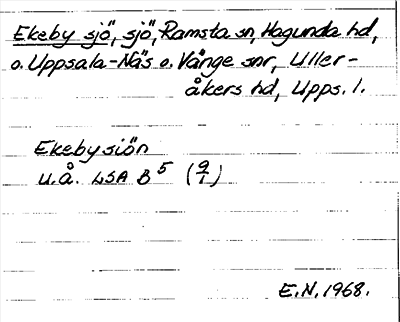 Ekeby sjö, sjö, Ramsta sn, Hagunda hd,
o. Uppsala-Näs o. Vänge snr, Uller-
åkers hd, Upps. l.
Ekebysiön
u.å. LSA B⁵ (9/1)
E.N. 1968.